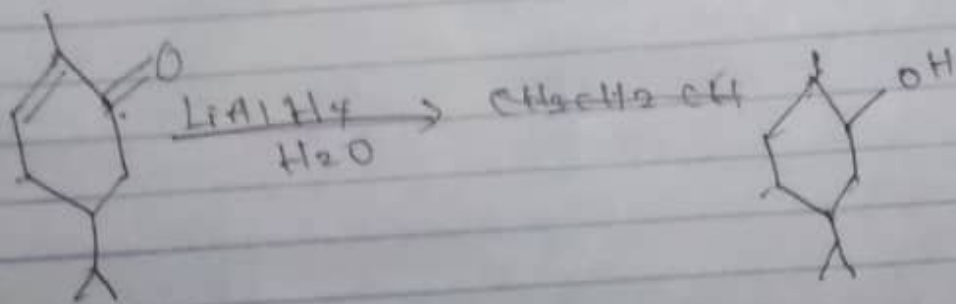 O
LiAlH4
H2O
CH3CH2 CH
OH